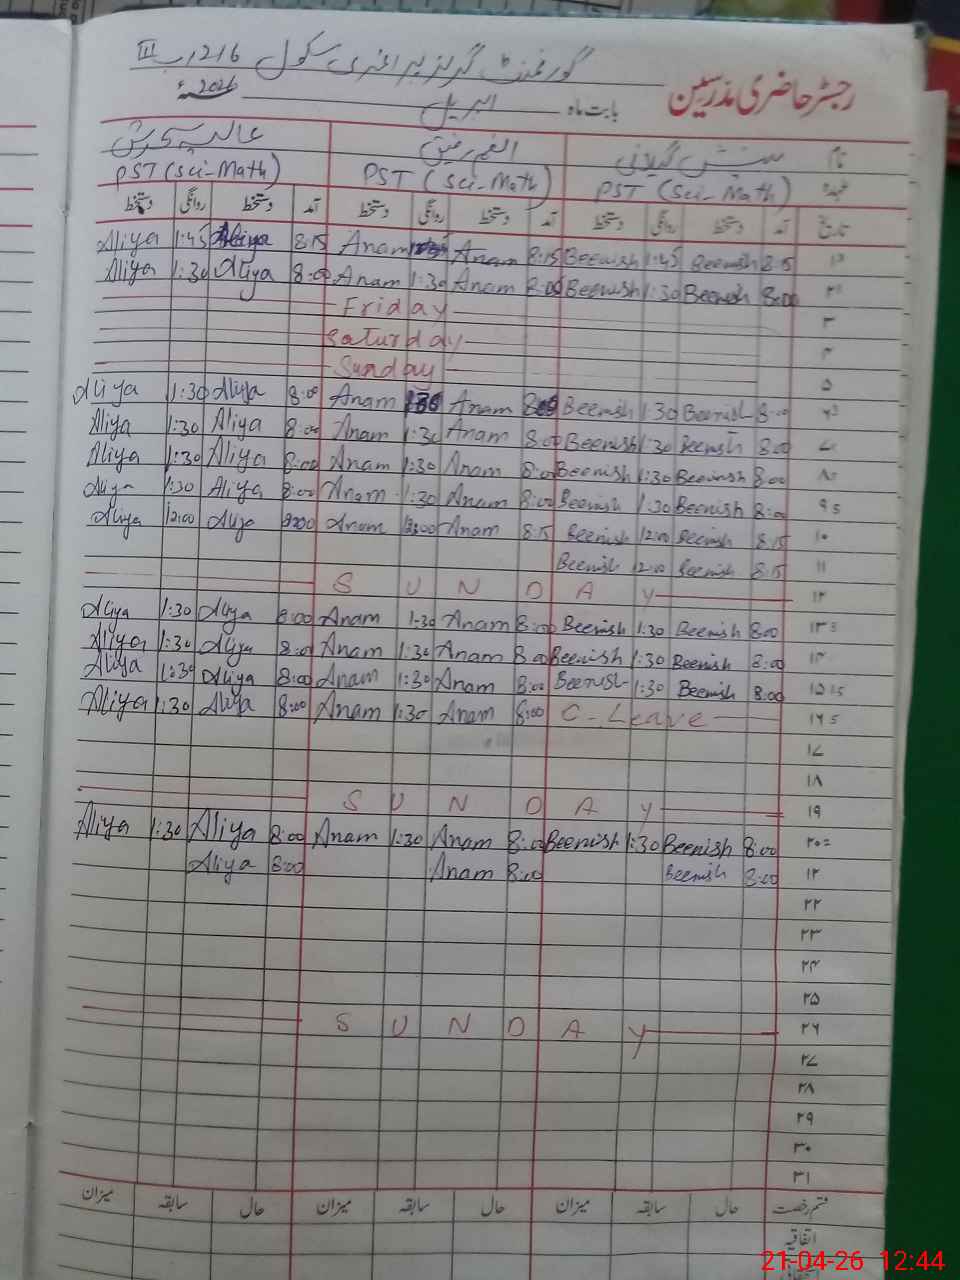 گورنمنٹ گرلز پرائمری سکول 216 ر ب III
رجسٹر حاضری مدرسین
بابت ماہ اپریل 2026ء
نام
عہدہ PST (Sci-Math) PST (Sci-Math) PST (Sci-Math)
تاریخ آمد دستخط روانگی دستخط آمد دستخط روانگی دستخط آمد دستخط روانگی دستخط
Aliya 1:45 Aliya 8:15 Anam Anam 8:15 Beenish 1:45 Beenish 8:15 ۱
Aliya 1:30 Aliya 8:00 Anam 1:30 Anam 8:00 Beenish 1:30 Beenish 8:00 ۲
Friday ۳
Saturday ۴
Sunday ۵
Aliya 1:30 Aliya 8:00 Anam 1:30 Anam 8:00 Beenish 1:30 Beenish 8:00 ۶
Aliya 1:30 Aliya 8:00 Anam 1:30 Anam 8:00 Beenish 1:30 Beenish 8:00 ۷
Aliya 1:30 Aliya 8:00 Anam 1:30 Anam 8:00 Beenish 1:30 Beenish 8:00 ۸
Aliya 1:30 Aliya 8:00 Anam 1:30 Anam 8:00 Beenish 1:30 Beenish 8:00 ۹
Aliya 12:00 Aliya Anam 12:00 Anam 8:15 Beenish 12:00 Beenish 8:15 ۱۰
Beenish 12:00 Beenish 8:15 ۱۱
SUNDAY ۱۲
Aliya 1:30 Aliya 8:00 Anam 1:30 Anam 8:00 Beenish 1:30 Beenish 8:00 ۱۳
Aliya 1:30 Aliya 8:00 Anam 1:30 Anam 8:00 Beenish 1:30 Beenish 8:00 ۱۴
Aliya 1:30 Aliya 8:00 Anam 1:30 Anam 8:00 Beenish 1:30 Beenish 8:00 ۱۵
Aliya 1:30 Aliya 8:00 Anam 1:30 Anam 8:00 C-Leave ۱۶
۱۷
۱۸
SUNDAY ۱۹
Aliya 1:30 Aliya 8:00 Anam 1:30 Anam 8:00 Beenish 1:30 Beenish 8:00 ۲۰
Aliya 8:00 Anam 8:00 Beenish 8:00 ۲۱
۲۲
۲۳
۲۴
۲۵
SUNDAY ۲۶
۲۷
۲۸
۲۹
۳۰
۳۱
قسم رخصت حال سابقہ میزان حال سابقہ میزان حال سابقہ میزان
اتفاقیہ
21-04-26 12:44